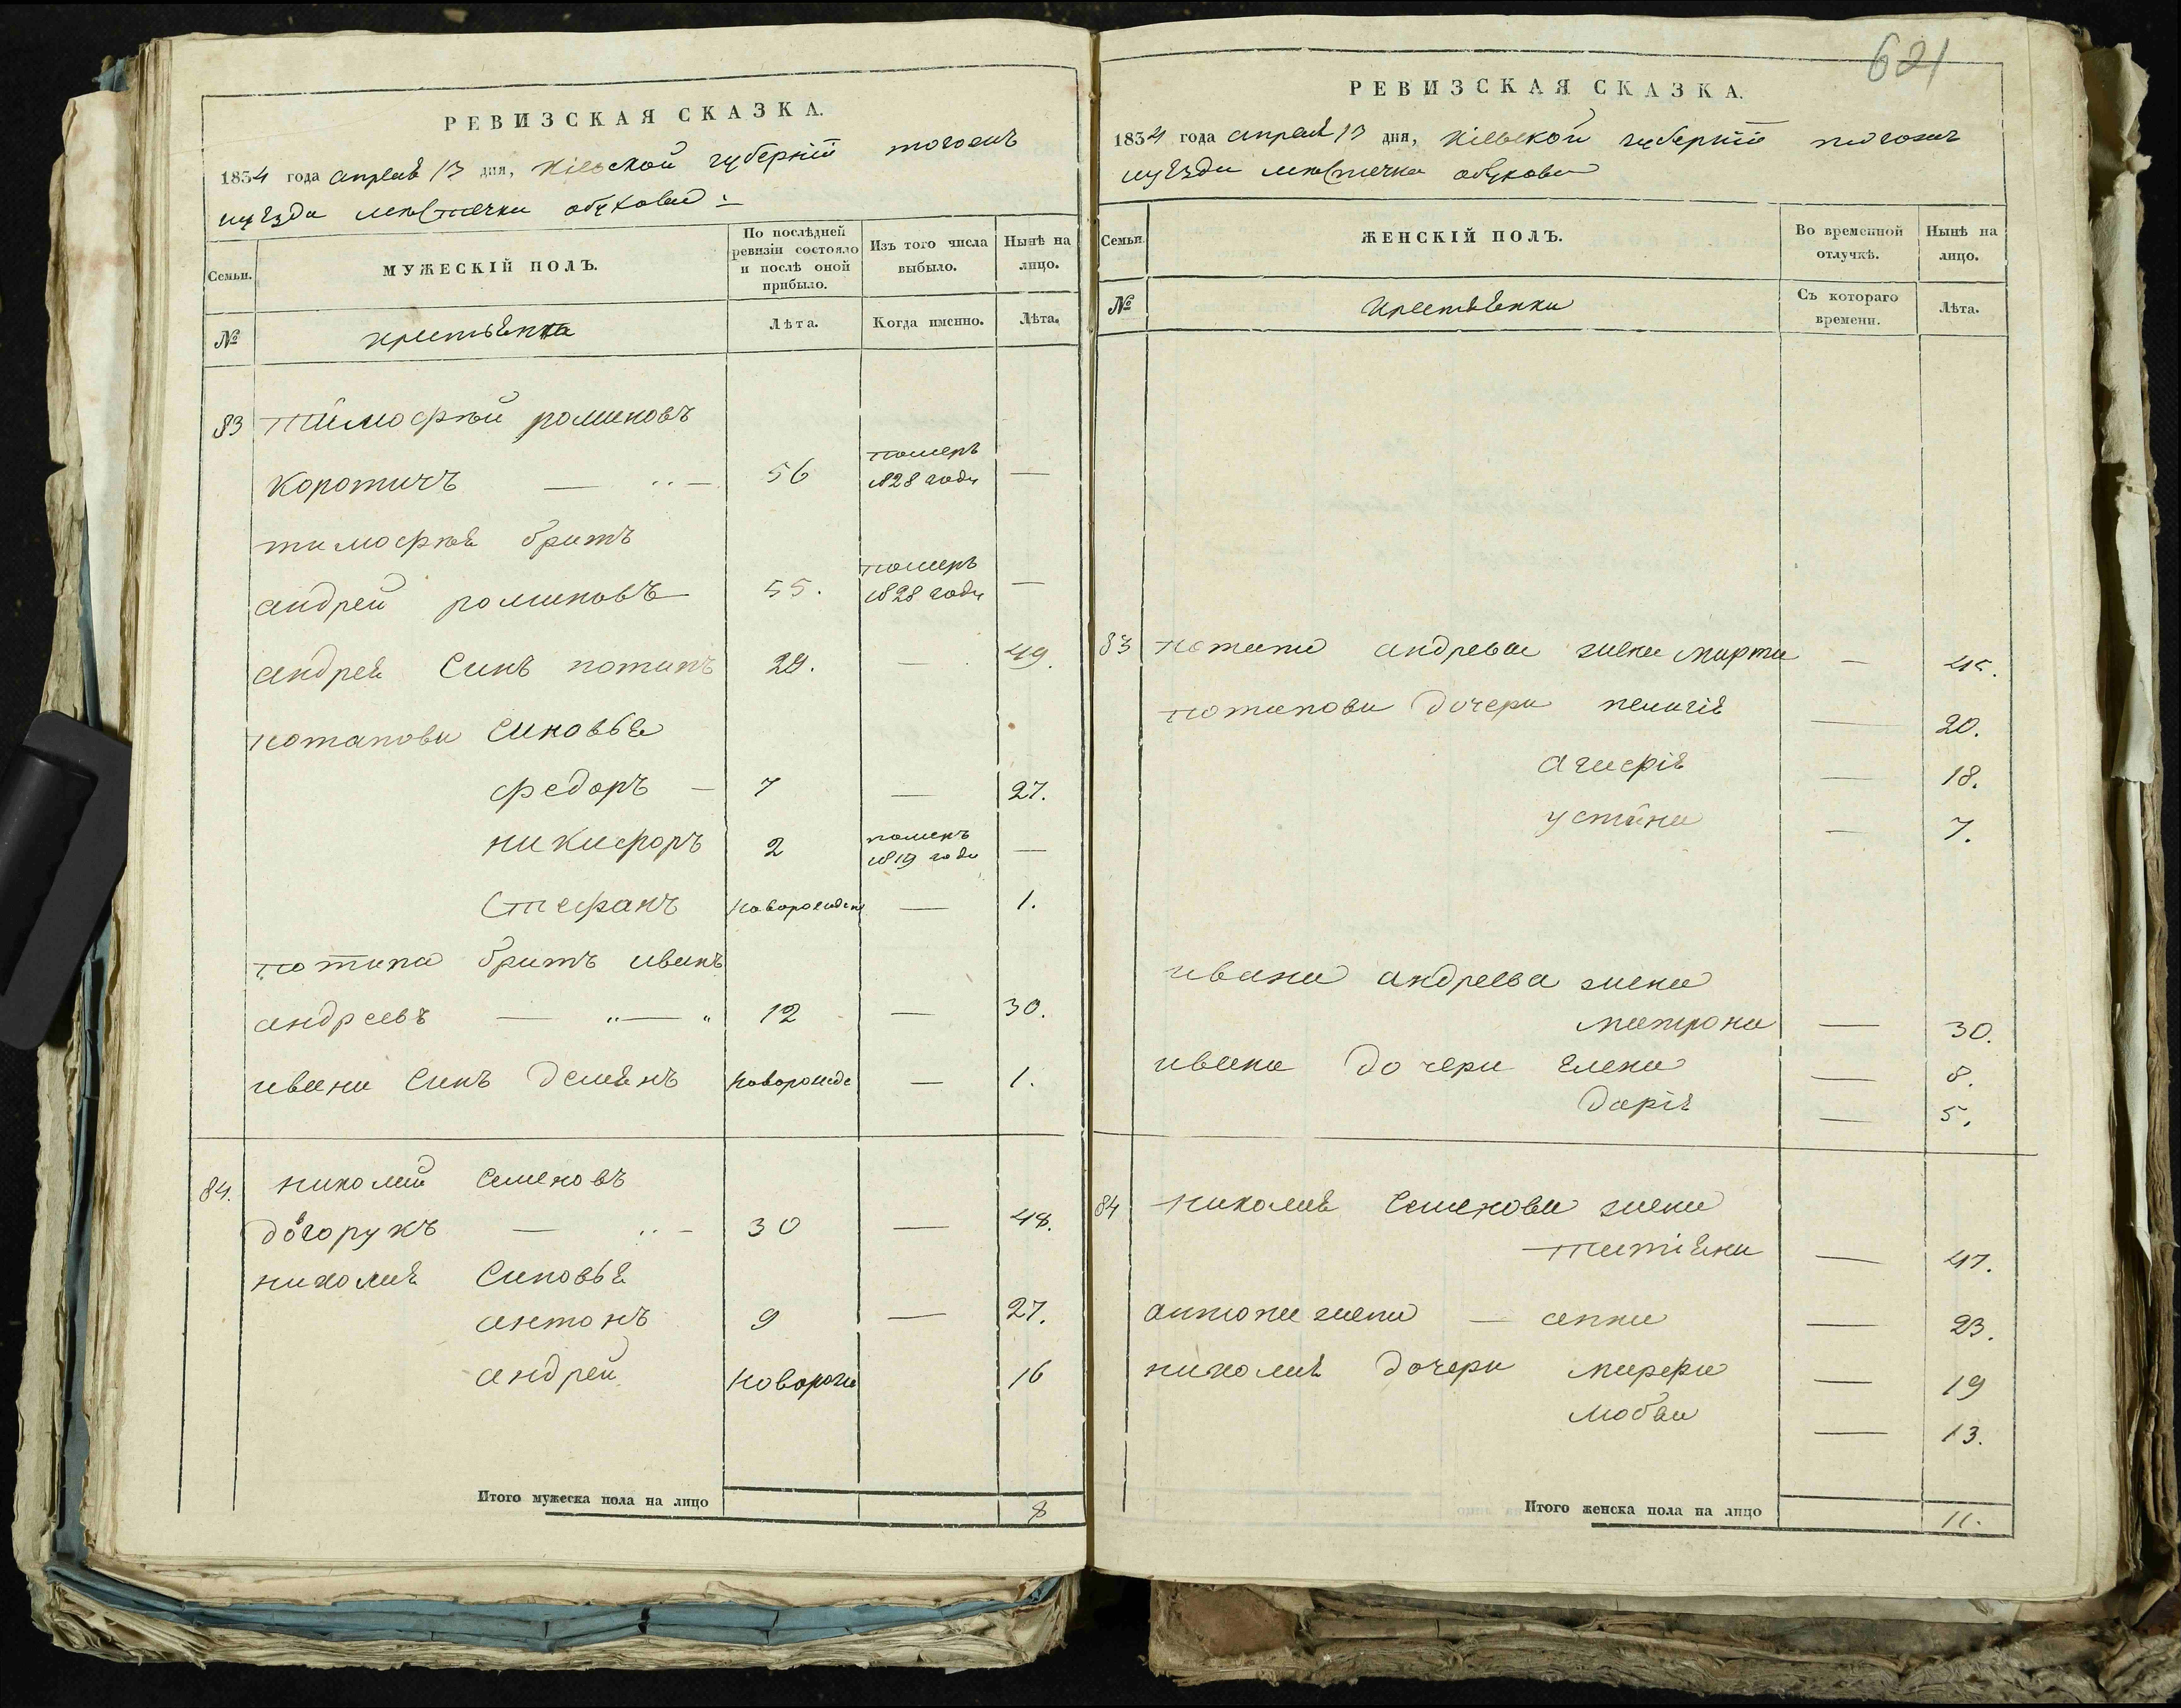 РЕВИЗСКАЯ СКАЗКА.
1834 года апреля 13 дня, Кіевской губерніи тогожъ
уѣзда местечка обухова
Семьи. МУЖЕСКІЙ ПОЛЪ. По послѣдней ревизіи состояло и послѣ оной прибыло. Изъ того числа выбыло. Нынѣ на лицо.
№ крестьяне Лѣта. Когда именно. Лѣта.
83 Тимофей романовъ
коротичъ — 56 померъ 1828 года —
тимофея братъ
андрей романовъ 55. померъ 1828 года —
андрея Синъ потапъ 29. — 49.
потапови Синовья
федоръ — 7 — 27.
никифоръ 2 померъ 1819 года —
Стефанъ новорожден — 1.
потапа братъ иванъ
андреевъ — 12 — 30.
ивана Синъ демянъ новорожде — 1.
84. николай Семеновъ
довгорукъ — 30 — 48.
николая Синовья
антонъ 9 — 27.
андрей новорож 16
Итого мужеска пола на лицо 8
621
РЕВИЗСКАЯ СКАЗКА.
1834 года апреля 13 дня, Кіевской губерніи тогожъ
уѣзда местечка обухова
Семьи. ЖЕНСКІЙ ПОЛЪ. Во временной отлучкѣ. Нынѣ на лицо.
№ крестьянки Съ котораго времени. Лѣта.
83 потапа андреева жена марта — 45.
потапови дочери пелагія — 20.
агафія — 18.
устина — 7.
ивана андреева жена
матрона — 30.
ивана дочери елена — 8.
дарія — 5.
84 николая Семенова жена
татіяна — 47.
антона жена — анна — 23.
николая дочери марфа — 19
любви — 13.
Итого женска пола на лицо 11.